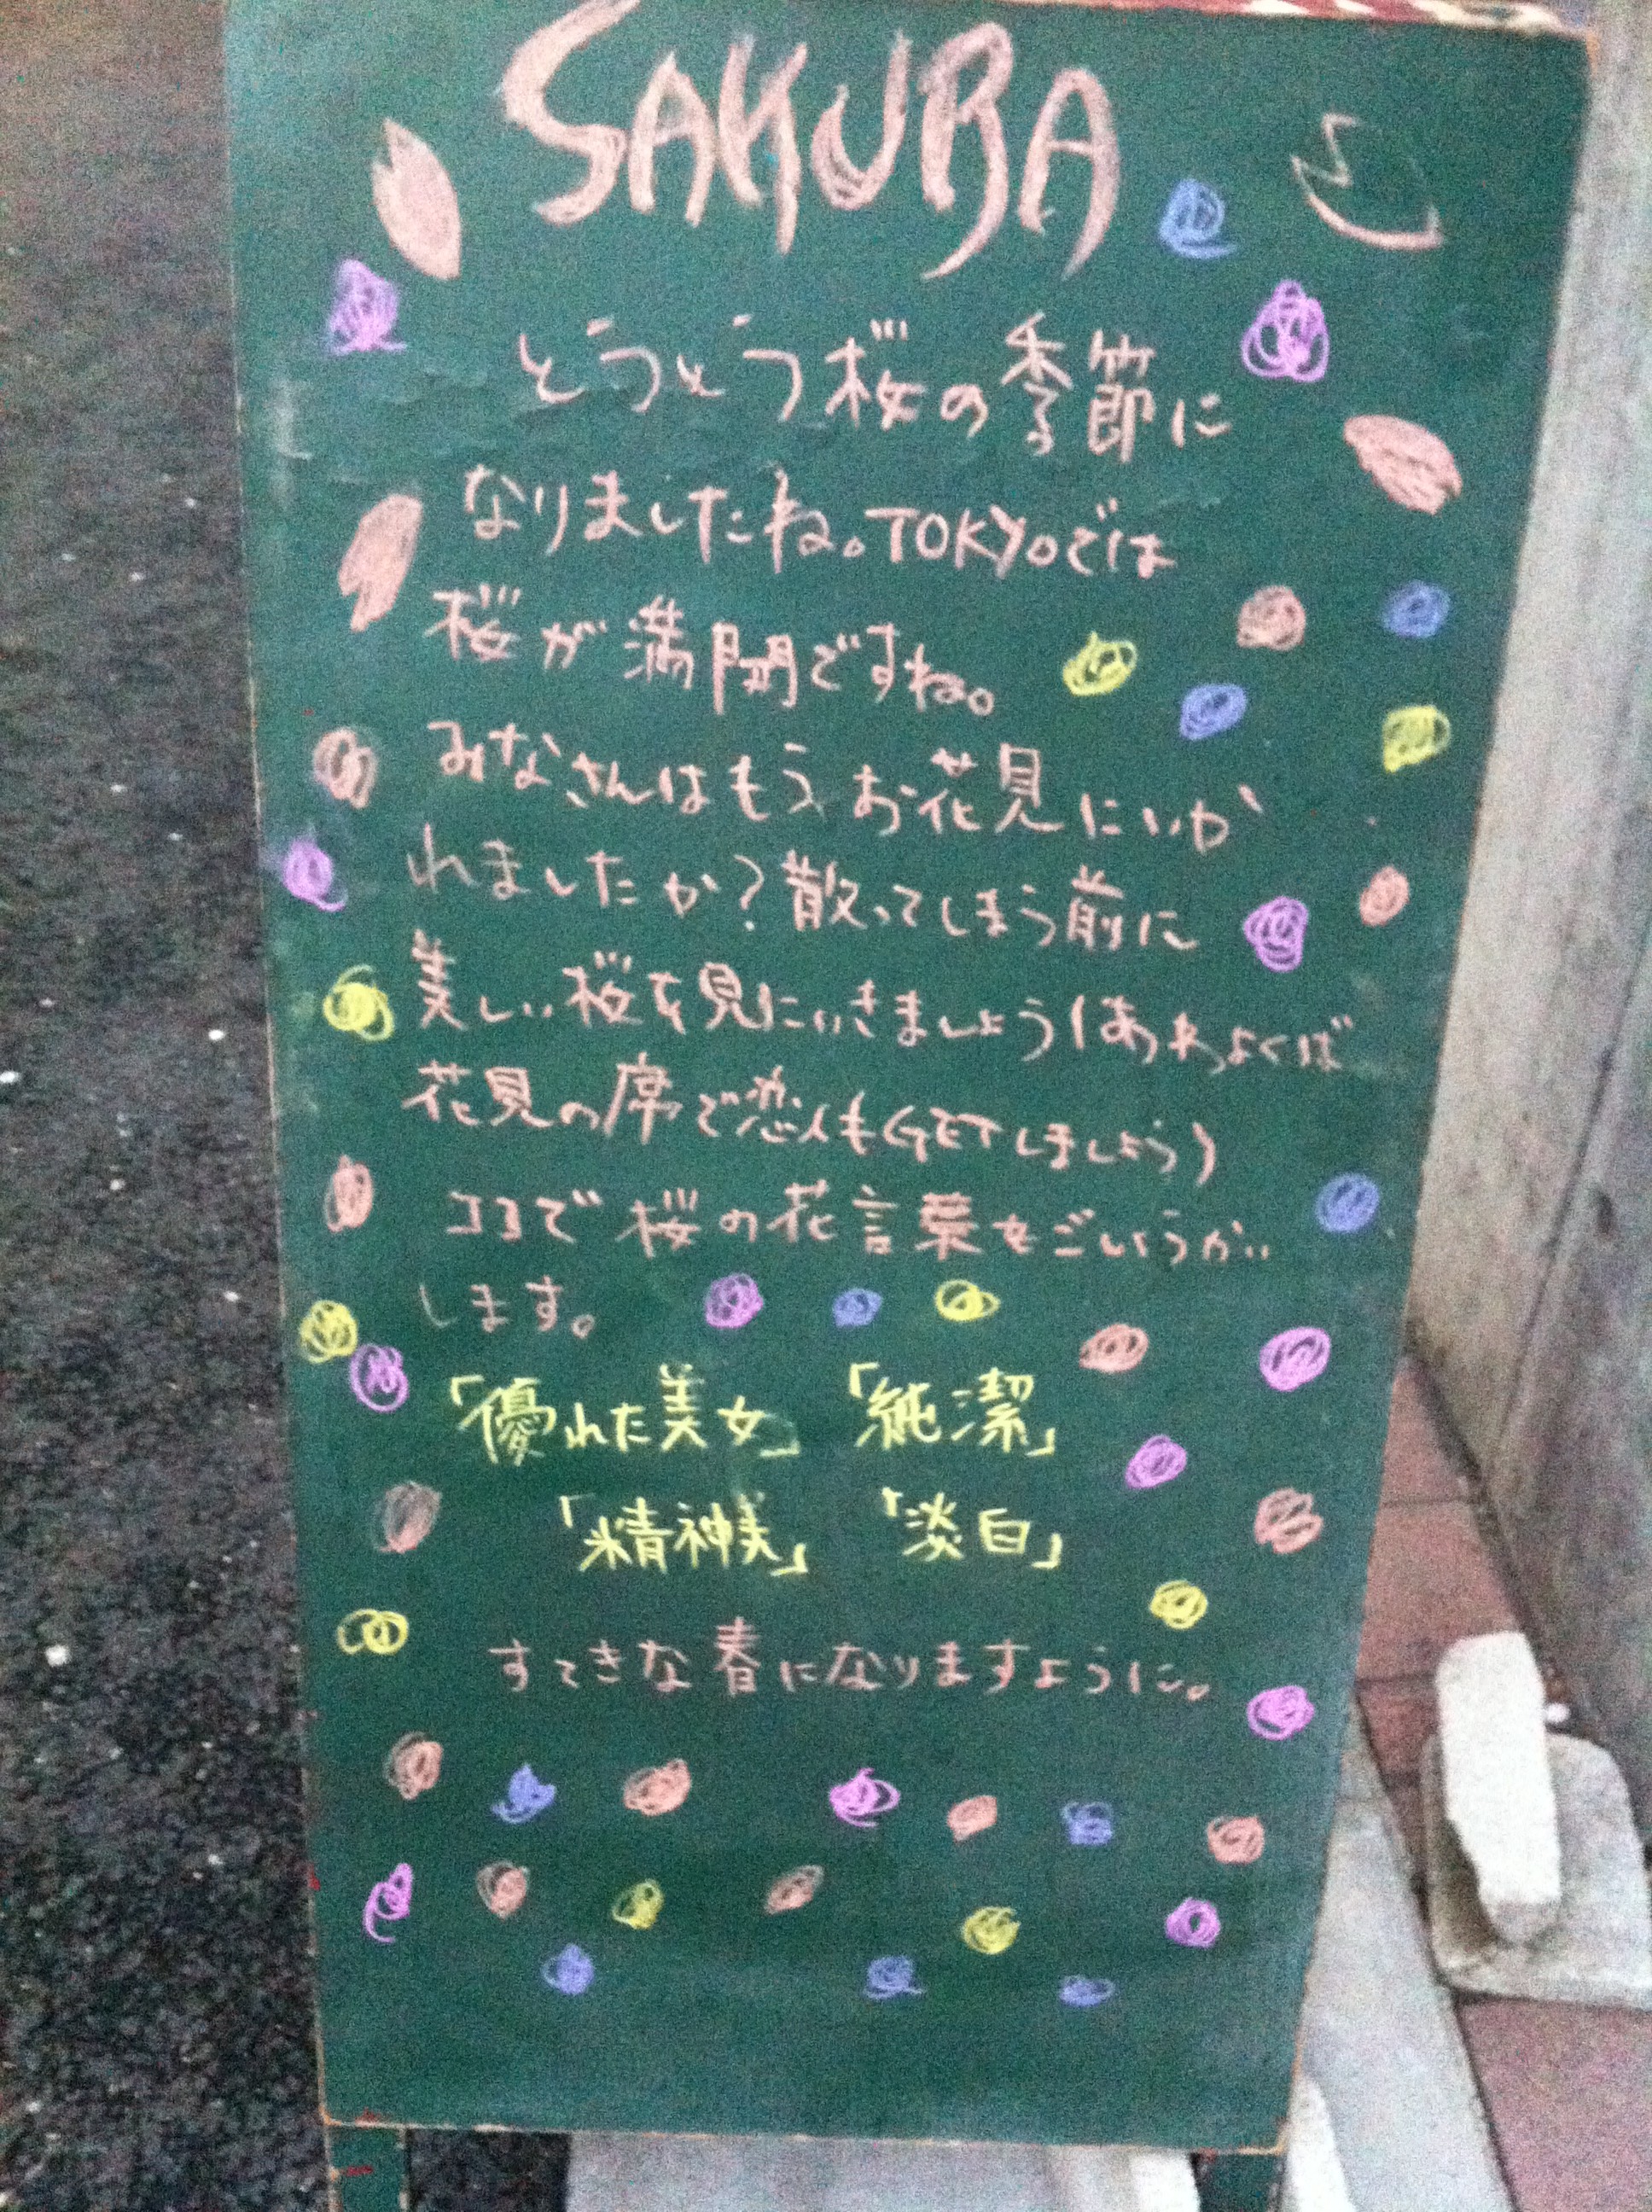 SAKURA
とうとう桜の季節に
なりましたね。TOKYOでは
桜が満開ですね。
みなさんはもうお花見にいか
れましたか?散ってしまう前に
美しい桜を見にいきましょう(あわよくば
花見の席で恋人もGETしましょう)
ココで桜の花言葉をごしょうかい
します。
「優れた美女」 「純潔」
「精神美」 「淡白」
すてきな春になりますように。